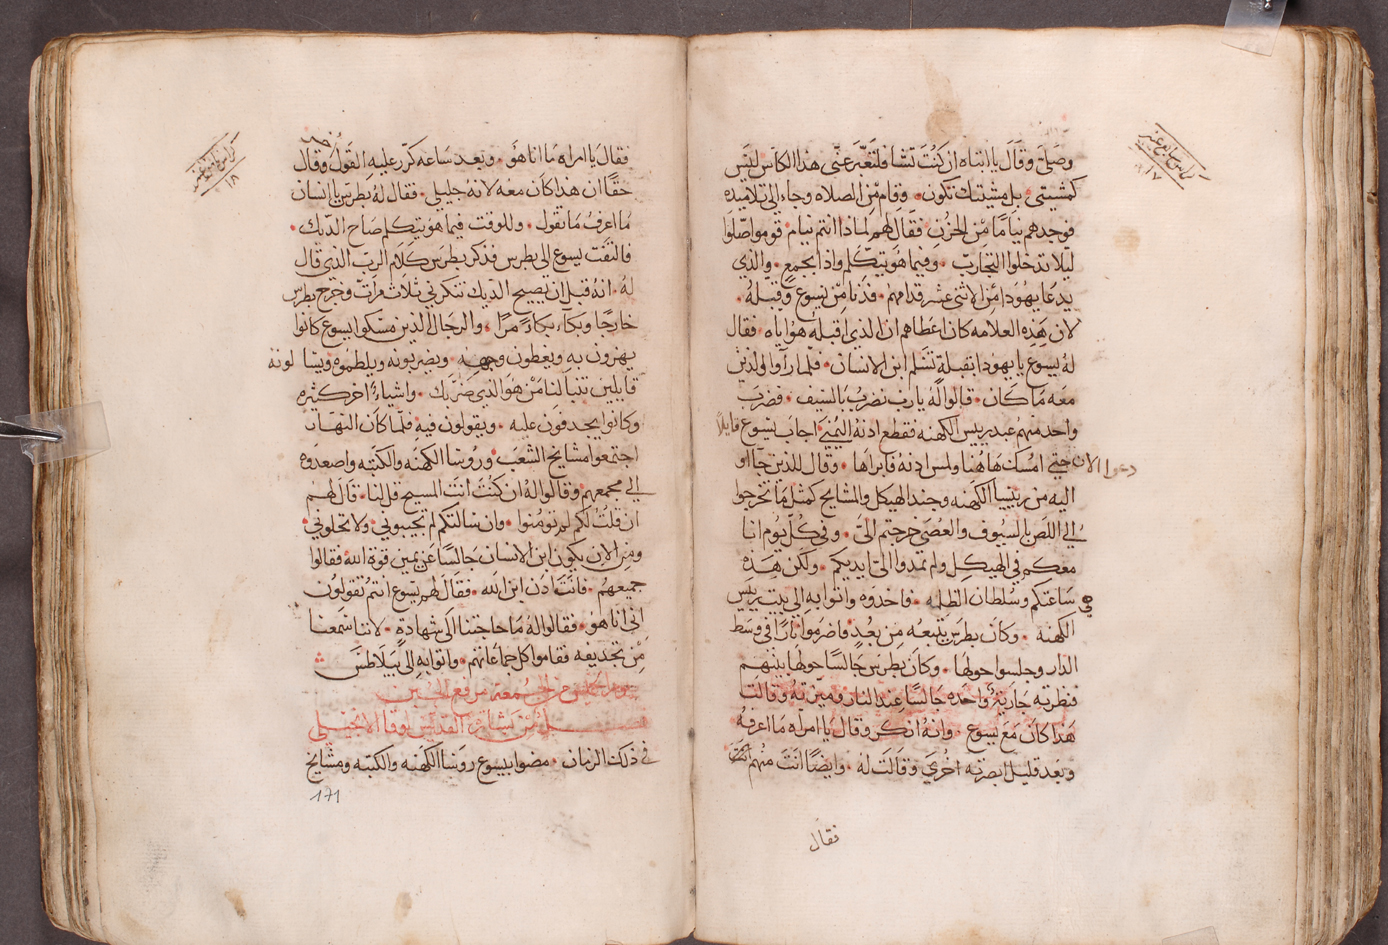 وصلى وقال يا ابتاه ان كنت تشا فلتعبر عني هذا الكاس ليس
كمشيتي بل مشيتك تكون. وقام من الصلاه وجاء الى تلاميده
فوجدهم نيامًا من الحزن فقال لهم لماذا انتم نيام قوموا صلوا
ليلا تدخلوا التجارب. وفيما هو يتكلم واذا بجمع. والذي
يدعا يهودا من الاثني عشر قدامهم. فدنا من يسوع وقبله.
لان هذه العلامه كان اعطاهم ان الذي اقبله هو اياه. فقال
له يسوع يا يهودا ابقبلة تسلم ابن الانسان. فلما راوا الذين
معه ما كان. قالوا له يارب نضرب بالسيف. فضرب
واحد منهم عبد رييس الكهنه فقطع ادنه اليمني اجاب يسوع قايلاً
دعوا الان حتي امسك هاهنا ولمس ادنه فابراها. وقال للذين جاآوا
اليه من رييسا الكهنه وجند الهيكل والمشايخ كمثل ما تخرجوا
الي اللص بالسيوف والعصي خرجتم اليّ. وفي كل يوم انا
معكم في الهيكل ولم تمدوا اليّ ايديكم. ولكن هذه
هي ساعتكم وسلطان الظلمه. فاخدوه واتوا به الى بيت رييس
الكهنه. وكان بطرس يتبعه من بعد فاضرموا نارًا في وسط
الدار وجلسوا حولها. وكان بطرس جالسًا حولها بينهم
فنظرته جارية واحده جالسًا عند النار فميزته وقالت
هذا كان مع يسوع. وانه انكر وقال يا امراه ما اعرفه
وبعد قليل ابصرته اخري وقالت له. وايضًا انت منهم
فقال
١٧
فقال يا امراه ما انا هو. وبعد ساعه كرر عليه القول وقال
حقًا ان هذا كان معه لانه جليلي. فقال له بطرس يا انسان
ما اعرف ما تقول. وللوقت فيما هو يتكلم صاح الديك.
فالتفت يسوع الى بطرس فذكر بطرس كلام الرب الذي قال
له. انه قبل ان يصيح الديك تنكرني ثلاث مرات وخرج بطرس
خارجًا وبكاء بكاءً مرًا. والرجال الذين مسكوا يسوع كانوا
يهزون به ويغطون وجهه. ويضربونه ويلطموه ويسا لونه
قايلين تنبا لنا من هو الذي ضربك. واشياءً اخر كثره
وكانوا يجدفون عليه. ويقولون فيه فلما كان النهار
اجتمعوا مشايخ الشعب وروسا الكهنه والكتبه واصعدوه
الي مجمعهم وقالوا له ان كنت انت المسيح قل لنا. قال لهم
ان قلت لكم لم تومنوا. وان سالتكم لم تجيبوني. ولا تخلوني
ومن الان يكون ابن الانسان جالسًا عن يمين قوة الله فقالوا
جميعهم. فانت ادن ابن الله. فقال لهم يسوع انتم تقولون
اني انا هو. فقالوا له ما حاجتنا الى شهادة. لاننا سمعنا
من تجديفه فقاموا كل جماعاتهم. واتوا به الى بيلاطس
يوم الخميس من الجمعه مرفع الجبن
فصل من بشارة القديس لوقا الانجيلي
في ذلك الزمان. مضوا بيسوع روسا الكهنه والكتبه ومشايخ
171
١٨